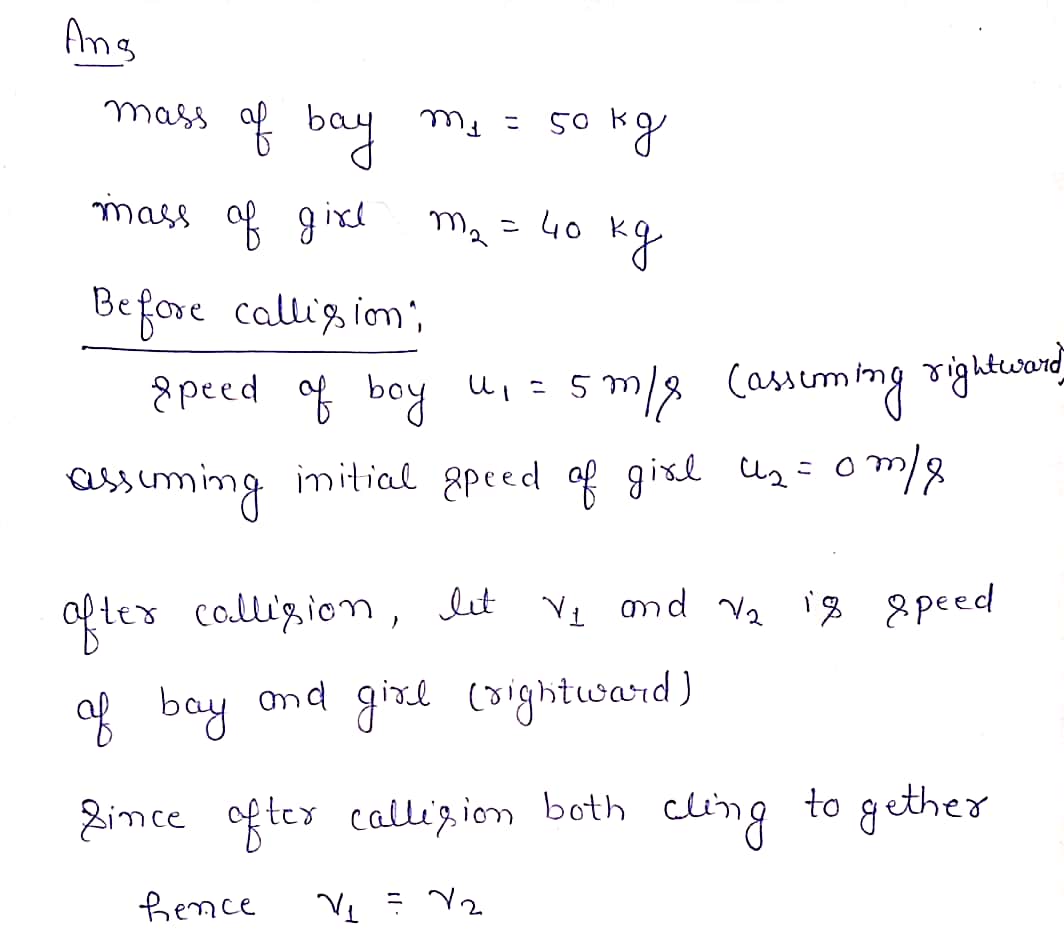 Ans
mass of boy m₁ = 50 kg
mass of girl m₂ = 40 kg
Before collision;
speed of boy u₁ = 5 m/s (assuming rightward)
assuming initial speed of girl u₂ = 0 m/s
after collision, let v₁ and v₂ is speed
of boy and girl (rightward)
Since after collision both cling to gether
hence v₁ = v₂